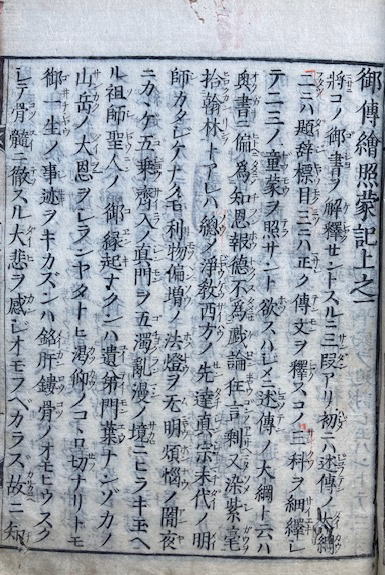 御傳繪照蒙記上之一
將コノ御書ヲ解釋サントスルニ三段アリ初ニハ述傳ノ大綱
二ニハ題辞標目三ニハ正ク傳文ヲ釋スコノ三科ヲ細繹シ
テ二三ノ童蒙ヲ照サント欲スハシメニ述傳ノ大綱ト云ハ
奥書ニ偏為知恩報德不為戲論狂言剰又染紫毫
拾翰林トアレハ總ノ淨敎西方ノ先達真宗末代ノ明
師カタシケナクモ利物偏増ノ法燈ヲ无明煩惱ノ闇夜
ニカヽケ五乗齊入ノ真門ヲ五濁亂漫ノ境ニヒラキモヘ
ル祖師聖人ノ御縁起ナクンハ遺弟門葉ナンゾカノ
山岳ノ大恩ヲシランヤタトヒ渇仰ノコヽロ切ナリトモ
御一生ノ事迹ヲキカズンハ銘肝鏤骨ノオモヒウスク
シテ骨髓ニ徹スル大悲ヲ感シオモフベカラス故ニ知